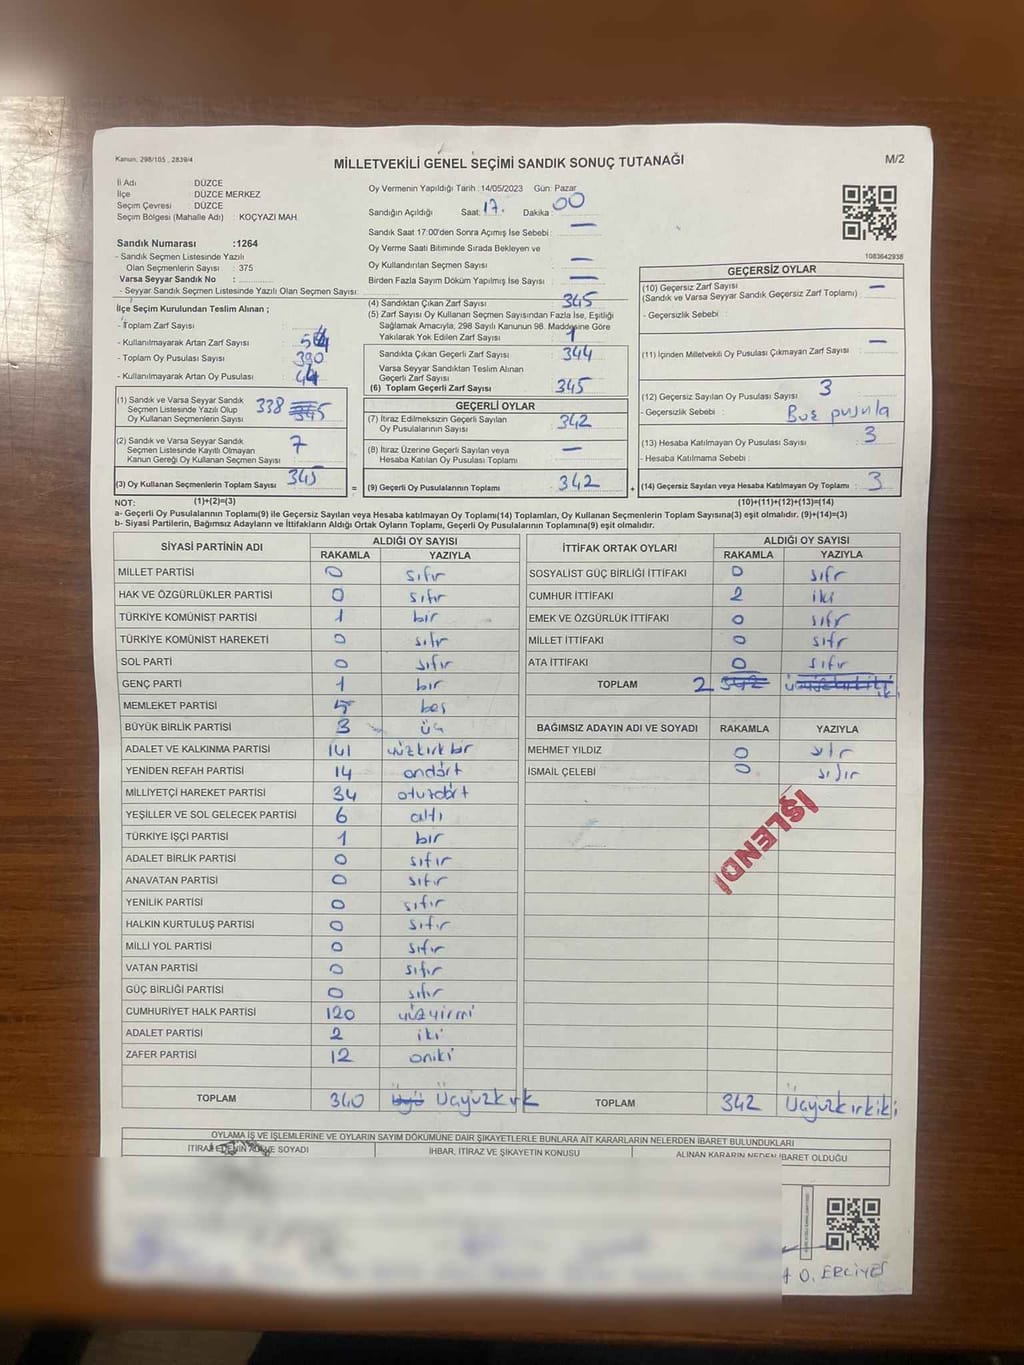 Kanun, 298/105 , 2839/4
MİLLETVEKİLİ GENEL SEÇİMİ SANDIK SONUÇ TUTANAĞI
M/2
İl Adı : DÜZCE
İlçe : DÜZCE MERKEZ
Seçim Çevresi : DÜZCE
Seçim Bölgesi (Mahalle Adı) : KOÇYAZI MAH.
Sandık Numarası :1264
- Sandık Seçmen Listesinde Yazılı
Olan Seçmenlerin Sayısı : 375
Varsa Seyyar Sandık No :
- Seyyar Sandık Seçmen Listesinde Yazılı Olan Seçmen Sayısı:
İlçe Seçim Kurulundan Teslim Alınan ;
- Toplam Zarf Sayısı :
- Kullanılmayarak Artan Zarf Sayısı :
- Toplam Oy Pusulası Sayısı : 390
- Kullanılmayarak Artan Oy Pusulası : 44
(1) Sandık ve Varsa Seyyar Sandık
Seçmen Listesinde Yazılı Olup
Oy Kullanan Seçmenlerin Sayısı : 338 345
(2) Sandık ve Varsa Seyyar Sandık
Seçmen Listesinde Kayıtlı Olmayan
Kanun Gereği Oy Kullanan Seçmen Sayısı : 7
(3) Oy Kullanan Seçmenlerin Toplam Sayısı : 345
Oy Vermenin Yapıldığı Tarih : 14/05/2023 Gün: Pazar
Sandığın Açıldığı Saat: 17. Dakika : 00
Sandık Saat 17:00'den Sonra Açımış İse Sebebi : —
Oy Verme Saati Bitiminde Sırada Bekleyen ve
Oy Kullandırılan Seçmen Sayısı : —
Birden Fazla Sayım Döküm Yapılmış İse Sayısı : —
(4) Sandıktan Çıkan Zarf Sayısı : 345
(5) Zarf Sayısı Oy Kullanan Seçmen Sayısından Fazla İse, Eşitliği
Sağlamak Amacıyla, 298 Sayılı Kanunun 98. Maddesine Göre
Yakılarak Yok Edilen Zarf Sayısı : 1
Sandıkta Çıkan Geçerli Zarf Sayısı : 344
Varsa Seyyar Sandıktan Teslim Alınan
Geçerli Zarf Sayısı :
(6) Toplam Geçerli Zarf Sayısı : 345
GEÇERLİ OYLAR
(7) İtiraz Edilmeksizin Geçerli Sayılan
Oy Pusulalarının Sayısı : 342
(8) İtiraz Üzerine Geçerli Sayılan veya
Hesaba Katılan Oy Pusulası Toplamı : —
= (9) Geçerli Oy Pusulalarının Toplamı : 342 +
1083642938
GEÇERSİZ OYLAR
(10) Geçersiz Zarf Sayısı : —
(Sandık ve Varsa Seyyar Sandık Geçersiz Zarf Toplamı)
- Geçersizlik Sebebi :
(11) İçinden Milletvekili Oy Pusulası Çıkmayan Zarf Sayısı : —
(12) Geçersiz Sayılan Oy Pusulası Sayısı : 3
- Geçersizlik Sebebi : Boş pusula
(13) Hesaba Katılmayan Oy Pusulası Sayısı : 3
- Hesaba Katılmama Sebebi :
(14) Geçersiz Sayılan veya Hesaba Katılmayan Oy Toplamı : 3
NOT: (1)+(2)=(3) (10)+(11)+(12)+(13)=(14)
a- Geçerli Oy Pusulalarının Toplamı(9) ile Geçersiz Sayılan veya Hesaba katılmayan Oy Toplamı(14) Toplamları, Oy Kullanan Seçmenlerin Toplam Sayısına(3) eşit olmalıdır. (9)+(14)=(3)
b- Siyasi Partilerin, Bağımsız Adayların ve İttifakların Aldığı Ortak Oyların Toplamı, Geçerli Oy Pusulalarının Toplamına(9) eşit olmalıdır.
SİYASİ PARTİNİN ADI ALDIĞI OY SAYISI
RAKAMLA YAZIYLA
MİLLET PARTİSİ 0 sıfır
HAK VE ÖZGÜRLÜKLER PARTİSİ 0 sıfır
TÜRKİYE KOMÜNİST PARTİSİ 1 bir
TÜRKİYE KOMÜNİST HAREKETİ 0 sıfır
SOL PARTİ 0 sıfır
GENÇ PARTİ 1 bir
MEMLEKET PARTİSİ 5 beş
BÜYÜK BİRLİK PARTİSİ 3 üç
ADALET VE KALKINMA PARTİSİ 141 yüzkırkbir
YENİDEN REFAH PARTİSİ 14 ondört
MİLLİYETÇİ HAREKET PARTİSİ 34 otuzdört
YEŞİLLER VE SOL GELECEK PARTİSİ 6 altı
TÜRKİYE İŞÇİ PARTİSİ 1 bir
ADALET BİRLİK PARTİSİ 0 sıfır
ANAVATAN PARTİSİ 0 sıfır
YENİLİK PARTİSİ 0 sıfır
HALKIN KURTULUŞ PARTİSİ 0 sıfır
MİLLİ YOL PARTİSİ 0 sıfır
VATAN PARTİSİ 0 sıfır
GÜÇ BİRLİĞİ PARTİSİ 0 sıfır
CUMHURİYET HALK PARTİSİ 120 yüzyirmi
ADALET PARTİSİ 2 iki
ZAFER PARTİSİ 12 oniki
TOPLAM 340 Üçyüzkırk
İTTİFAK ORTAK OYLARI ALDIĞI OY SAYISI
RAKAMLA YAZIYLA
SOSYALİST GÜÇ BİRLİĞİ İTTİFAKI 0 sıfır
CUMHUR İTTİFAKI 2 iki
EMEK VE ÖZGÜRLÜK İTTİFAKI 0 sıfır
MİLLET İTTİFAKI 0 sıfır
ATA İTTİFAKI 0 sıfır
TOPLAM 2 342 üçyüzkırkiki iki
BAĞIMSIZ ADAYIN ADI VE SOYADI RAKAMLA YAZIYLA
MEHMET YILDIZ 0 sıfır
İSMAİL ÇELEBİ 0 sıfır
İŞLENDİ
TOPLAM 342 Üçyüzkırkiki
OYLAMA İŞ VE İŞLEMLERİNE VE OYLARIN SAYIM DÖKÜMÜNE DAİR ŞİKAYETLERLE BUNLARA AİT KARARLARIN NELERDEN İBARET BULUNDUKLARI
İTİRAZ EDENİN ADI VE SOYADI İHBAR, İTİRAZ VE ŞİKAYETİN KONUSU ALINAN KARARIN NEDEN İBARET OLDUĞU
O. ERCİYES